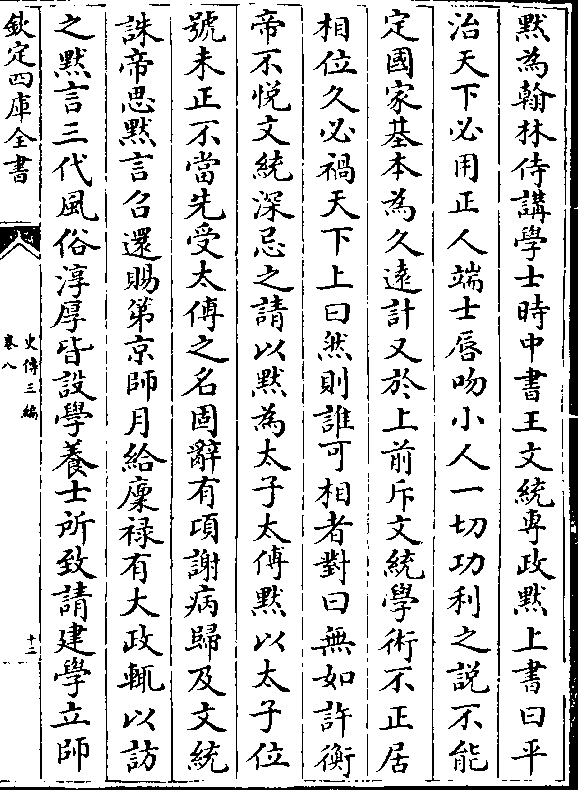 黙為翰林侍講學士時中書王文統専政黙上書曰平
治天下必用正人端士唇吻小人一切功利之説不能
定國家基本為久逺計又於上前斥文統學術不正居
相位久必禍天下上曰然則誰可相者對曰無如許衡
帝不悦文統深忌之請以黙為太子太傅黙以太子位
號未正不當先受太傅之名固辭有頃謝病歸及文統
誅帝思黙言召還賜第京師月給廩禄有大政輒以訪
之黙言三代風俗淳厚皆設學養士所致請建學立師
欽定四庫全書
史傳三編
卷八
十二